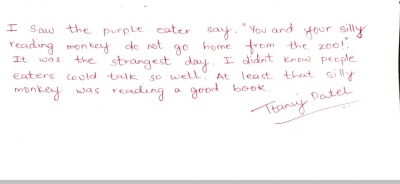 I saw the purple eater say. "You and your silly
reading monkey do not go home from the zoo!".
It was the strangest day. I didn't know people
eaters could talk so well. At least that silly
monkey was reading a good book.
Patel